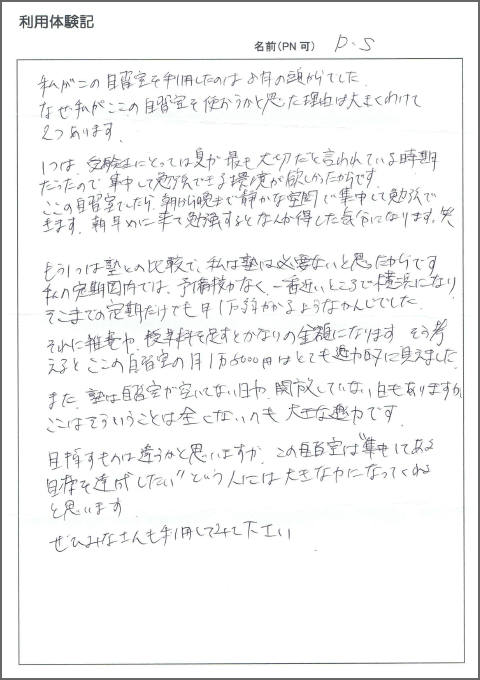 利用体験記
名前(PN可) D.S
私がこの自習室を利用したのは8月の頭からでした
なぜ私がここの自習室を使おうかと思った理由は大きくわけて
2つあります.
1つは、受験生にとっては夏が最も大切だと言われている時期
だったので集中して勉強できる環境が欲しかったからです.
ここの自習室でしたら、朝から晩まで静かな空間で集中して勉強で
きます. 朝早めに来て勉強するとなんか得した気分になります.笑
もう1つは塾との比較で、私は塾は必要ないと思ったからです
私の定期圏内では、予備校がなく、一番近いところで横浜になり
そこまでの定期だけでも月1万弱かかるようなかんじでした.
それに雑費や、授業料を足すとかなりの金額になります そう考
えると ここの自習室の月1万5000円はとても魅力的に見えました
また、塾は自習室が空いてない日や、開放していない日もありますが、
ここはそういうことは全くないのも大きな魅力です.
目指すものは違うかと思いますが、この自習室は"集中してある
目標を達成したい"という人には大きな力になってくれる
と思います
ぜひみなさんも利用してみて下さい